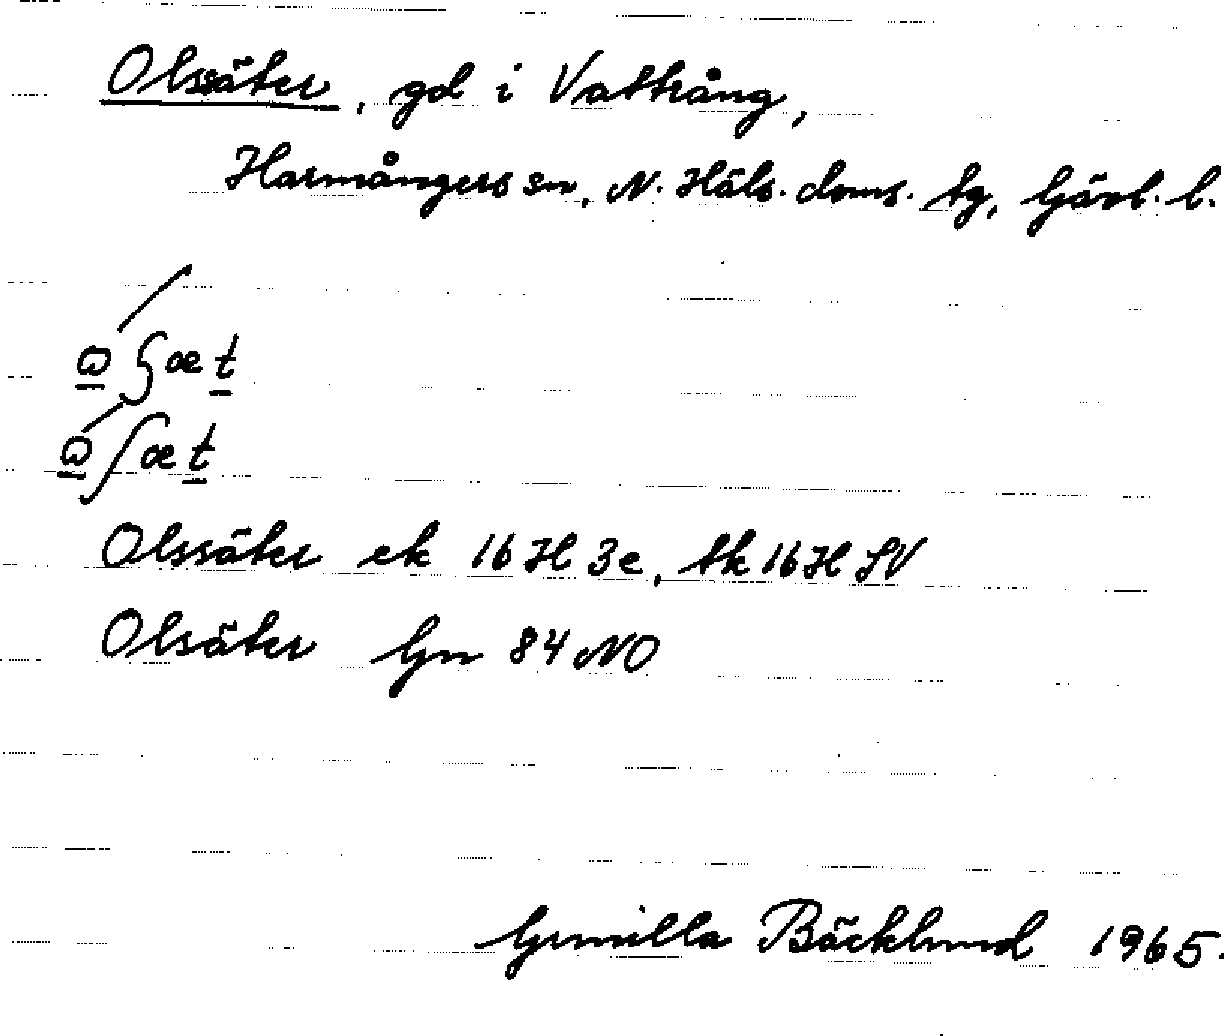 Olssäter, gd i Vattrång,
Harmångers sn, N. Häls. doms. tg, Gävl. l.
Olssäter ek 16 H 3e, tk 16 H SV
Olsäter Gn 84 NO
Gunilla Bäcklund 1965.